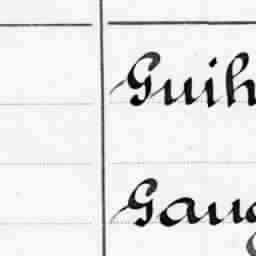 Guih
Gaug